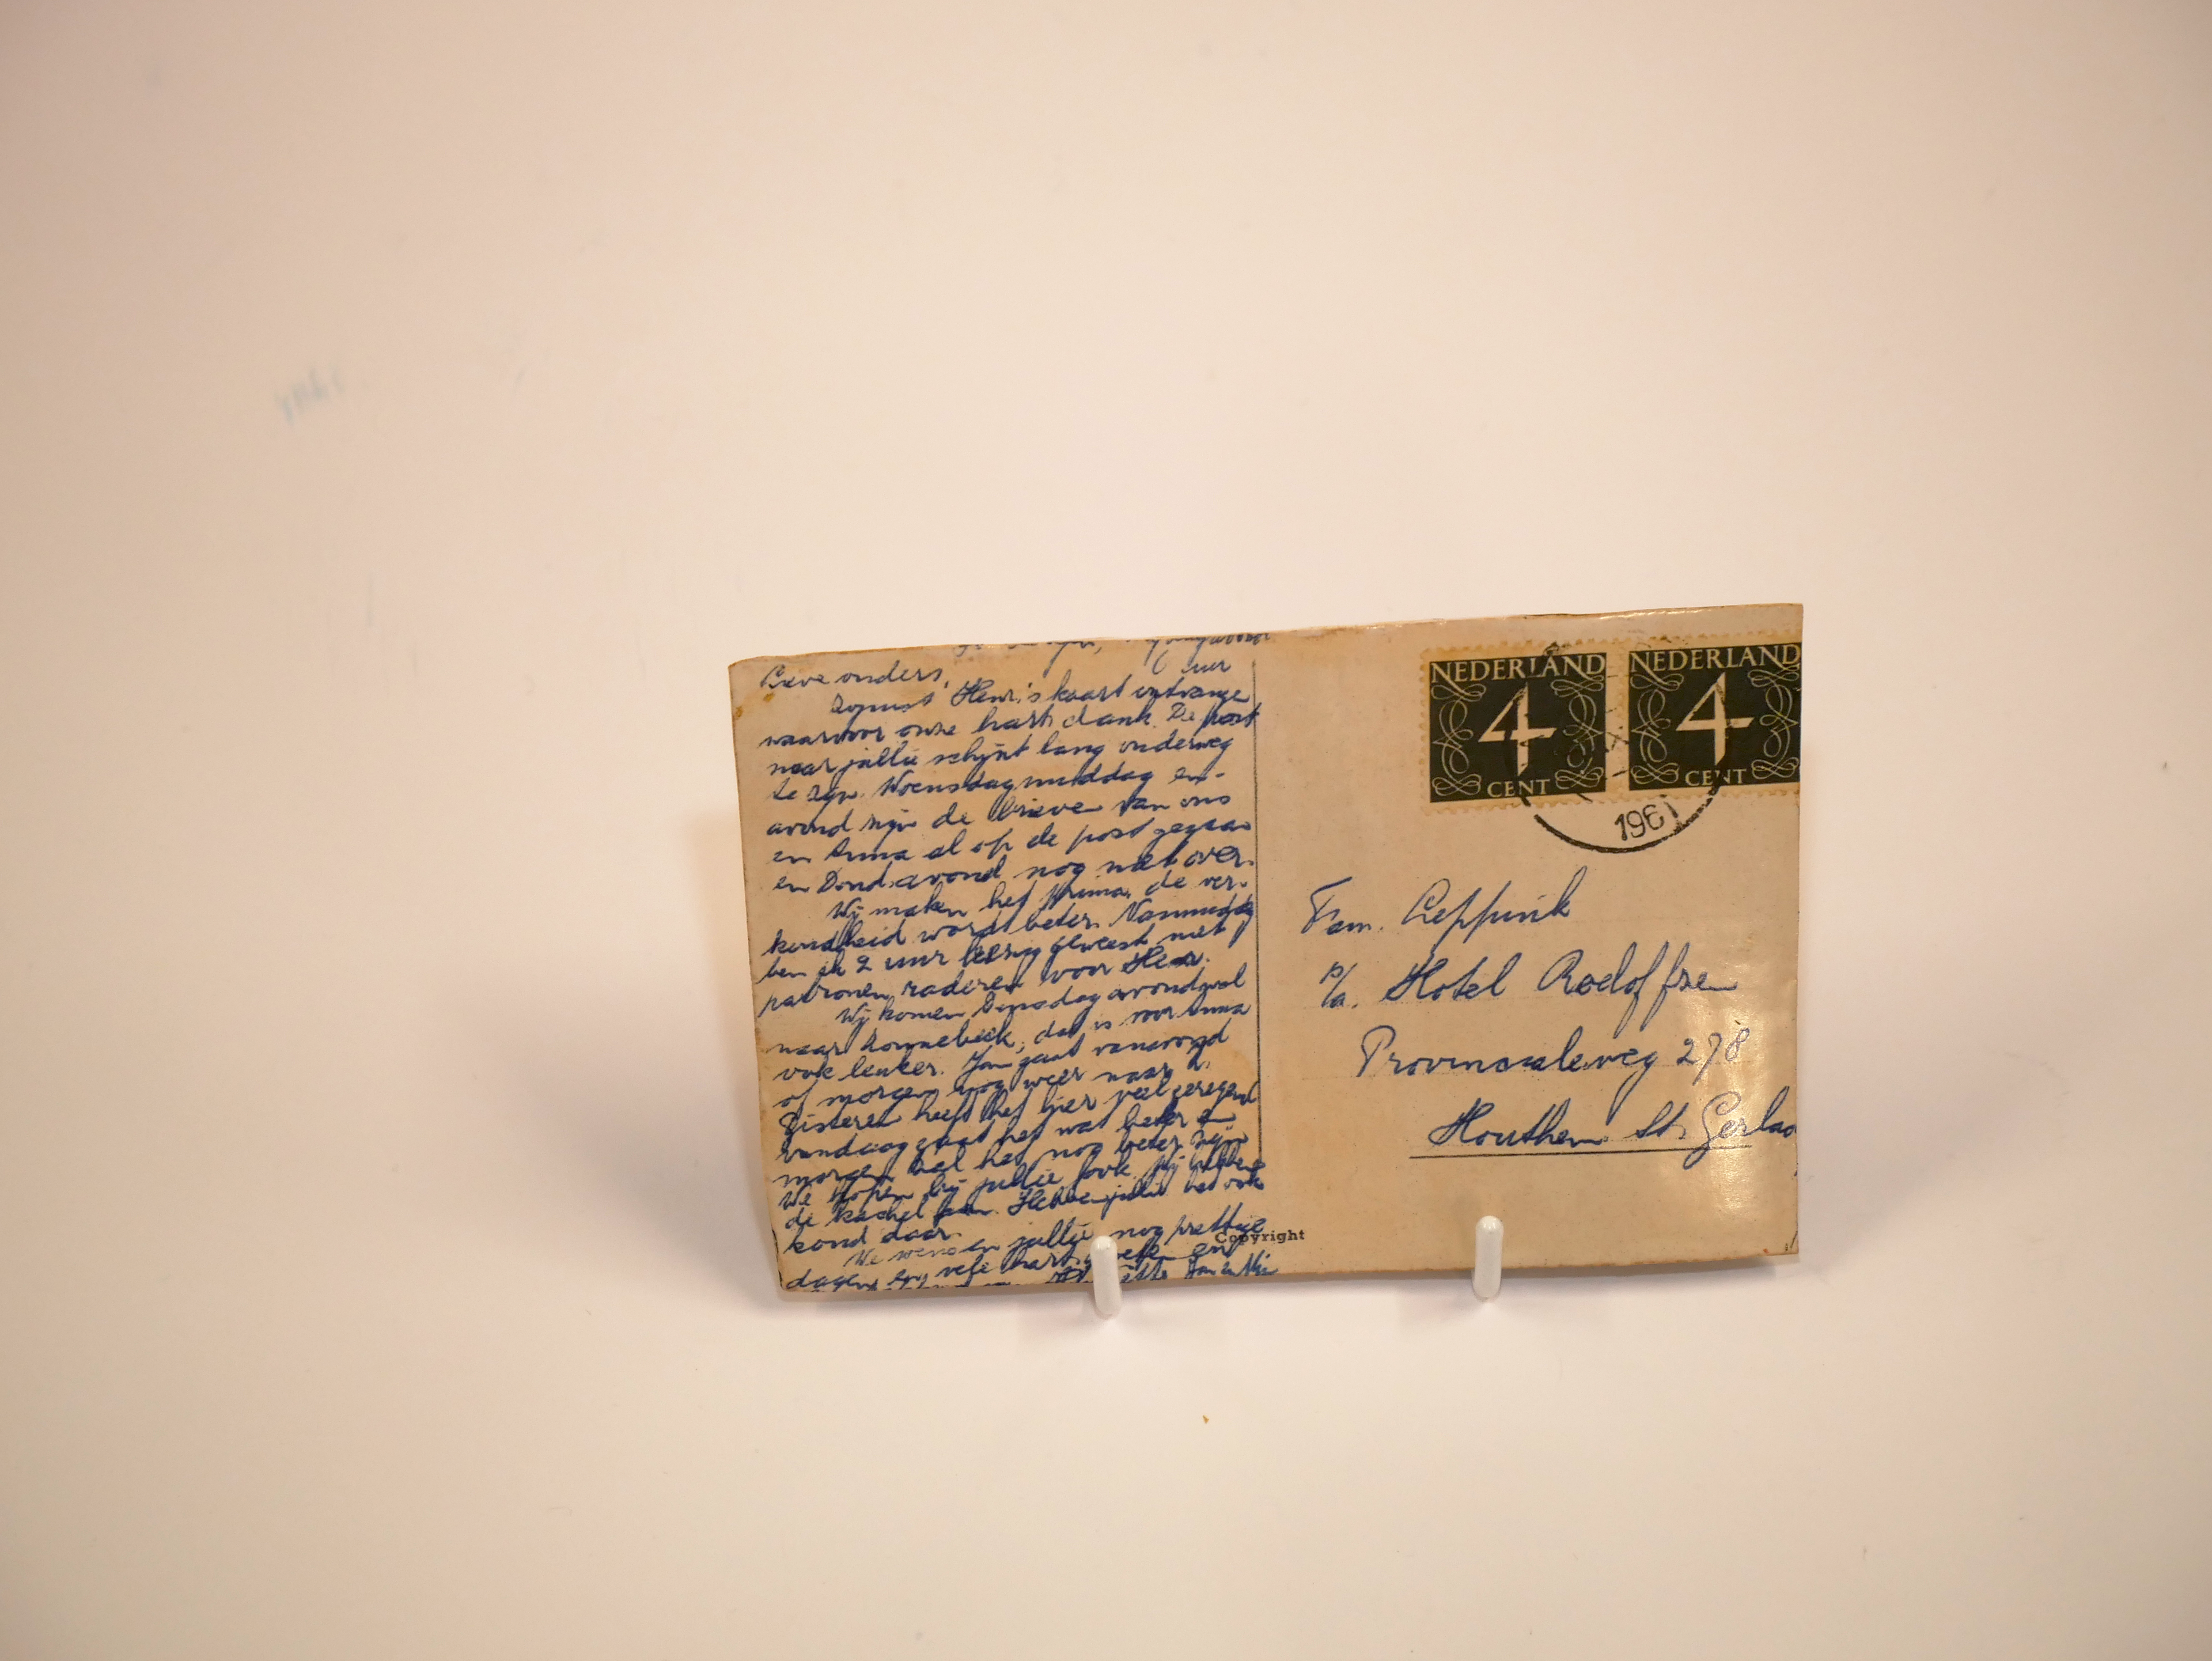 Lieve ouders,
uur
Zojuist Henri's kaart ontvange
waarvoor onze hart. dank. De post
naar jullie schijnt lang onderweg
te zijn. Woensdagmiddag en-
avond zijn de brieve van ons
en Anna al op de post gegaan
en Dond.avond nog niet over.
Wij maken het prima, de ver-
koudheid wordt beter. Namiddag
ben ik 2 uur bezig geweest met
patronen raderen voor Henr.
Wij komen Dinsdagavond wel
naar; dat is voor Anna
ook leuker. Jan gaat vanavond
of morgen nog weer naar
Gisteren heeft het hier veel geregend
vandaag gaat het wat beter en
morgen zal het nog beter zijn
We hopen bij jullie ook. Wij hebben
de kachel aan. Hebben jullie het ook
koud daar.
We wensen jullie nog prettige
dagen en vele hart. en
NEDERLAND
4
CENT
NEDERLAND
4
CENT
196
Fam. Leppink
p/a. Hotel Rodoffse
Provincialeweg 278
Houthem St. Gerlac
Copyright